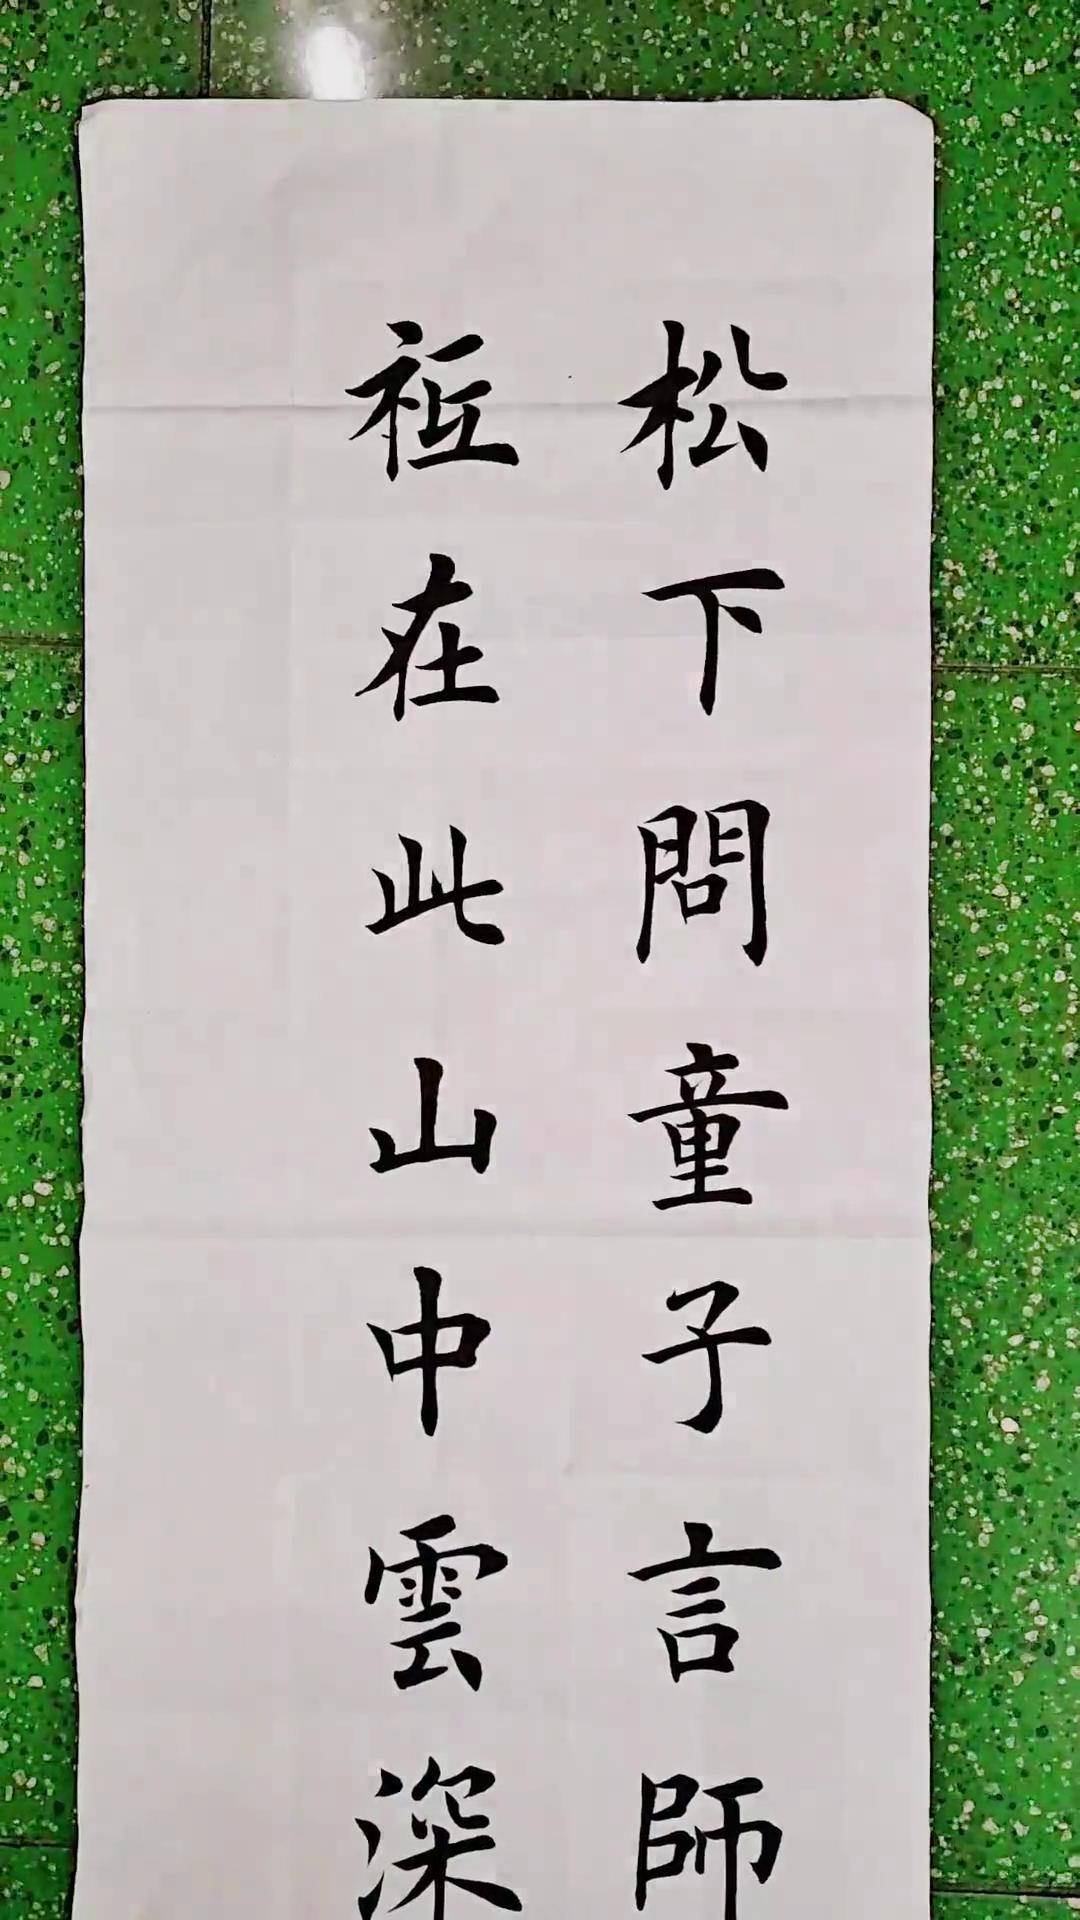 松下問童子言師
秪在此山中雲深